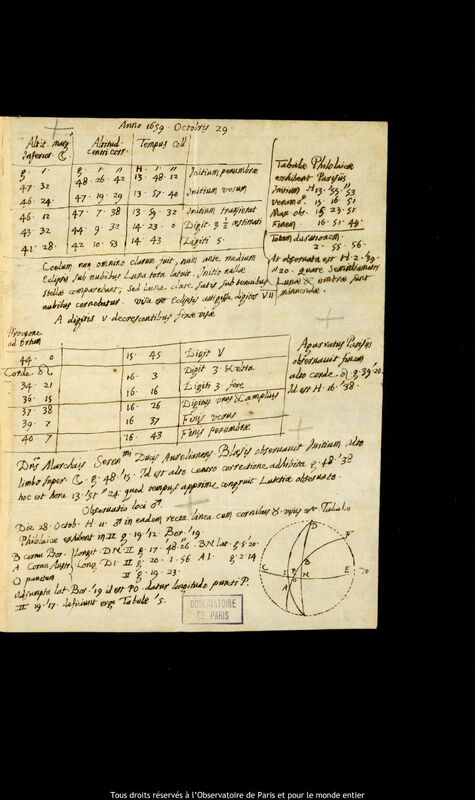 Anno 1659. Octobris 29.
Altit. marg Inferior ☾ Altitud. centri corr. Tempus Coll
g. ' g. ' " H. ' "
47. 32 48. 26. 42 13. 48. 12 Initium penumbræ
46. 24. 47. 19. 29 13. 57. 40 Initium verum
46. 12 47. 7. 38 13. 59. 32 Initium transierat
43. 32 44. 9. 32 14. 23. 0 Digit. 3 ½ æstimati
41. 28. 42. 10. 53 14. 43 Digiti 5.
Tabulæ Philolaicæ
exhibent Parisiis
Initium H 13. 55. 53
Verum 15. 16. 51
Max. obs. 15. 23. 51
Finem 16. 51. 49
Totam durationem
2. 55. 56.
At observata est H. 2. 39.
20. quare Semidiametri
Lunæ & umbræ sunt
minuendæ.
Cœlum non omnino clarum fuit, nam ante medium
Eclipsis sub nubibus Luna tota latuit. Initio nullæ
stellæ comparebant, sed Luna clare satis sub tenuibus
nubibus cernebatur. visa est Eclipsis attigisse digitos VII
A digitis V. decrescentibus fixæ visæ
Procyone ad Ortum
44. 0 15. 45 Digit V
Corde ♌
34. 21 16. 3 Digit 3
36. 15 16. 16 Digiti 3 fere
37. 38 16. 26 Digitus unus & amplius
39. 7 16. 37 Finis verus
40. 7 16. 43 Finis penumbræ
Agarratus Parisiis
observauit finem
alto corde ♌ g. 39. 20.
Id est H. 16. 38.
Dns Marchais Seren^mi Ducis Aurelianens. Blesis observauit Initium alto
limbo super. ☾ g. 48. 15. Id est alto centro correctione adhibita g. 48. 38
hoc est hora 13. 51. 24. quod tempus apprime congruit Lutetiæ observato.
Observatio loci ♂.
Die 28. Octob. H. 11. ♂ in eadem recta linea cum cornibus ♉. visus est Tabulæ
Philolaicæ exhibent in II g. 19. 12. Bor. 19.
B cornu Bor. Longit. D N. II g. 17. 48. 26. B N lat g. 5. 20.
A Cornu Austr. Long. D I. II g. 20. 1. 56 A I. g. 2. 14
O punctum II g. 19. 23.
Assumpta lat. Bor. 19 id est PO. datur longitudo puncti P.
II 19. 17. deficiunt ergo Tabulæ 5.
D
B
C I P N E
O
A
OBSERVATOIRE
DE PARIS
Tous droits réservés à l'Observatoire de Paris et pour le monde entier